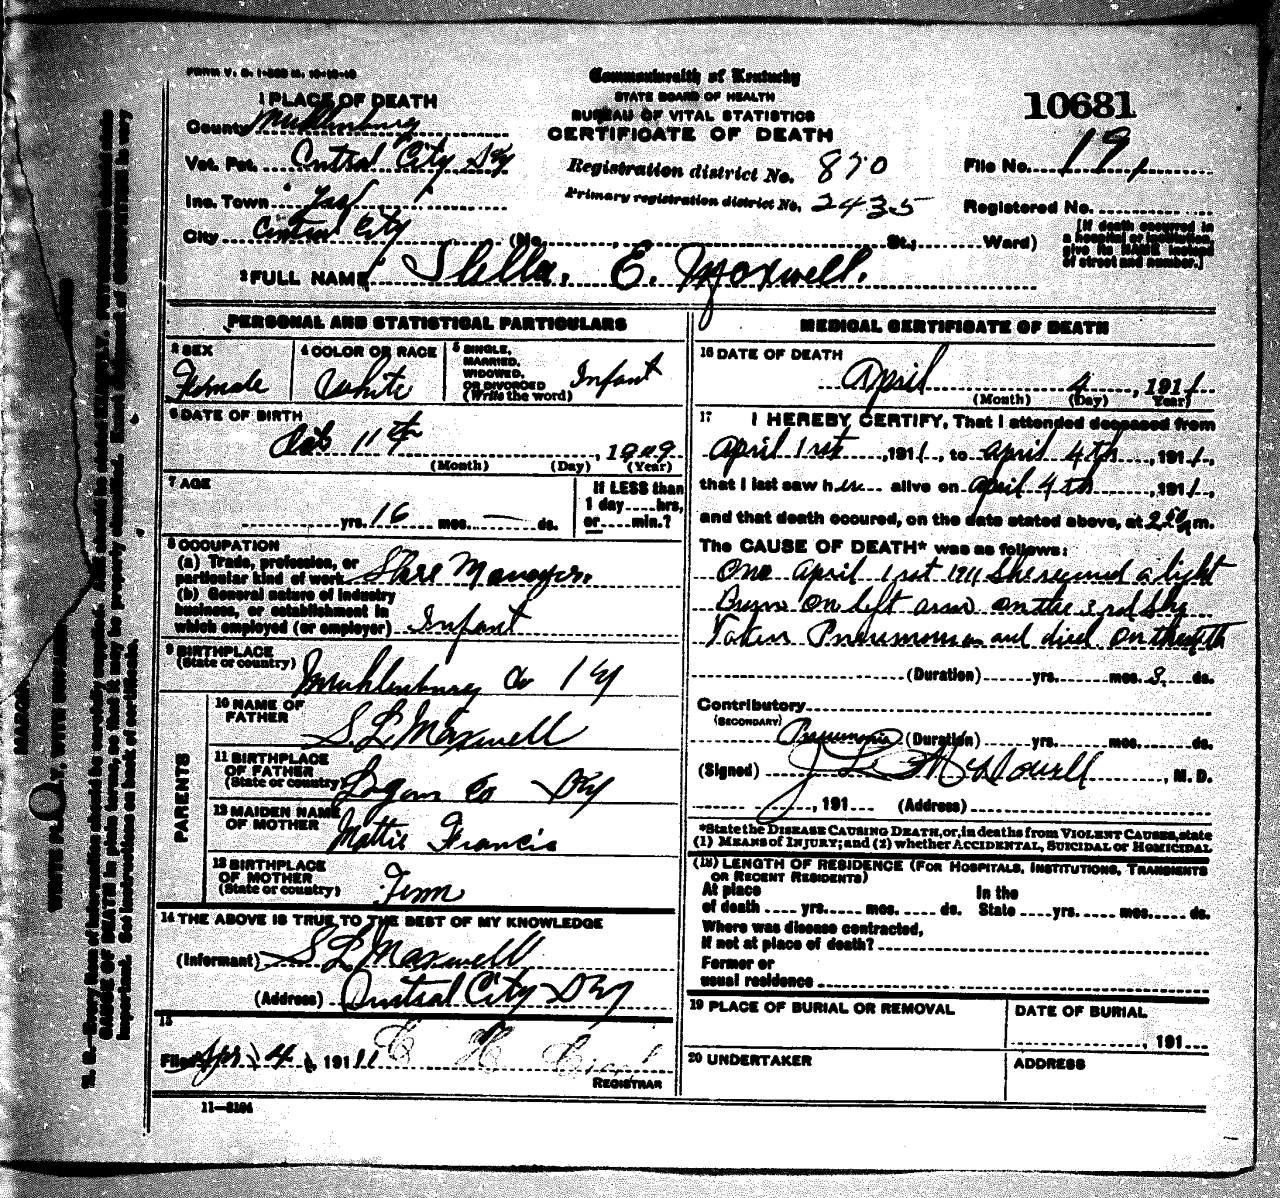 FORM V. S. 1-
Commonwealth of Kentucky
STATE BOARD OF HEALTH
BUREAU OF VITAL STATISTICS
CERTIFICATE OF DEATH
10681
1 PLACE OF DEATH
County Muhlenburg
Vot. Pct. Central City Ky
Inc. Town Yes
City Central City (No. St.; Ward)
Registration district No. 870
Primary registration district No. 2435
File No. 19
Registered No.
[If death occurred in
a hospital or institution
give its NAME instead
of street and number.]
2 FULL NAME Stella. E. Maxwell.
PERSONAL AND STATISTICAL PARTICULARS
3 SEX
Female
4 COLOR OR RACE
White
5 SINGLE,
MARRIED,
WIDOWED,
OR DIVORCED
(Write the word)
Infant
6 DATE OF BIRTH
11th, 1909
(Month) (Day) (Year)
7 AGE
yrs. 16 mos. — ds.
If LESS than
1 day hrs,
or min.?
8 OCCUPATION
(a) Trade, profession, or
particular kind of work
(b) General nature of industry
business, or establishment in
which employed (or employer) Infant
9 BIRTHPLACE
(State or country) Muhlenburg Co Ky
PARENTS
10 NAME OF
FATHER S L Maxwell
11 BIRTHPLACE
OF FATHER
(State or country) Logan Co Ky
13 MAIDEN NAME
OF MOTHER Mattie Francis
13 BIRTHPLACE
OF MOTHER
(State or country) Tenn
14 THE ABOVE IS TRUE TO THE BEST OF MY KNOWLEDGE
(Informant) S L Maxwell
(Address) Central City Ky
15
Filed Apr 4, 1911 E H
REGISTRAR
11—3194
MEDICAL CERTIFICATE OF DEATH
16 DATE OF DEATH
April 4, 1911
(Month) (Day) Year)
17 I HEREBY CERTIFY, That I attended deceased from
April 1rst, 1911, to April 4th, 1911,
that I last saw her alive on April 4th, 1911,
and that death occured, on the date stated above, at m.
The CAUSE OF DEATH* was as follows:
One April 1rst 1911 She recived a light
Burn on left arm on the 3rd She
Taken Pneumonia and died on the 4th
(Duration) yrs. mos. 3. ds.
Contributory
(SECONDARY)
Pneumonia (Duration) yrs. mos. ds.
(Signed) J L McDowell, M. D.
, 191 (Address)
*State the DISEASE CAUSING DEATH, or, in deaths from VIOLENT CAUSES, state
(1) MEANS OF INJURY; and (2) whether ACCIDENTAL, SUICIDAL or HOMICIDAL
(18) LENGTH OF RESIDENCE (FOR HOSPITALS, INSTITUTIONS, TRANSIENTS
OR RECENT RESIDENTS)
At place
of death yrs. mos. ds.
In the
State yrs. mos. ds.
Where was disease contracted,
If not at place of death?
Former or
usual residence
19 PLACE OF BURIAL OR REMOVAL
DATE OF BURIAL
, 191
20 UNDERTAKER
ADDRESS
MARGIN
N. B.—Every item of information should be carefully supplied. AGE should be stated EXACTLY. PHYSICIANS should state
CAUSE OF DEATH in plain terms, so that it may be properly classified. Exact statement of OCCUPATION is very
important. See instructions on back of certificate.